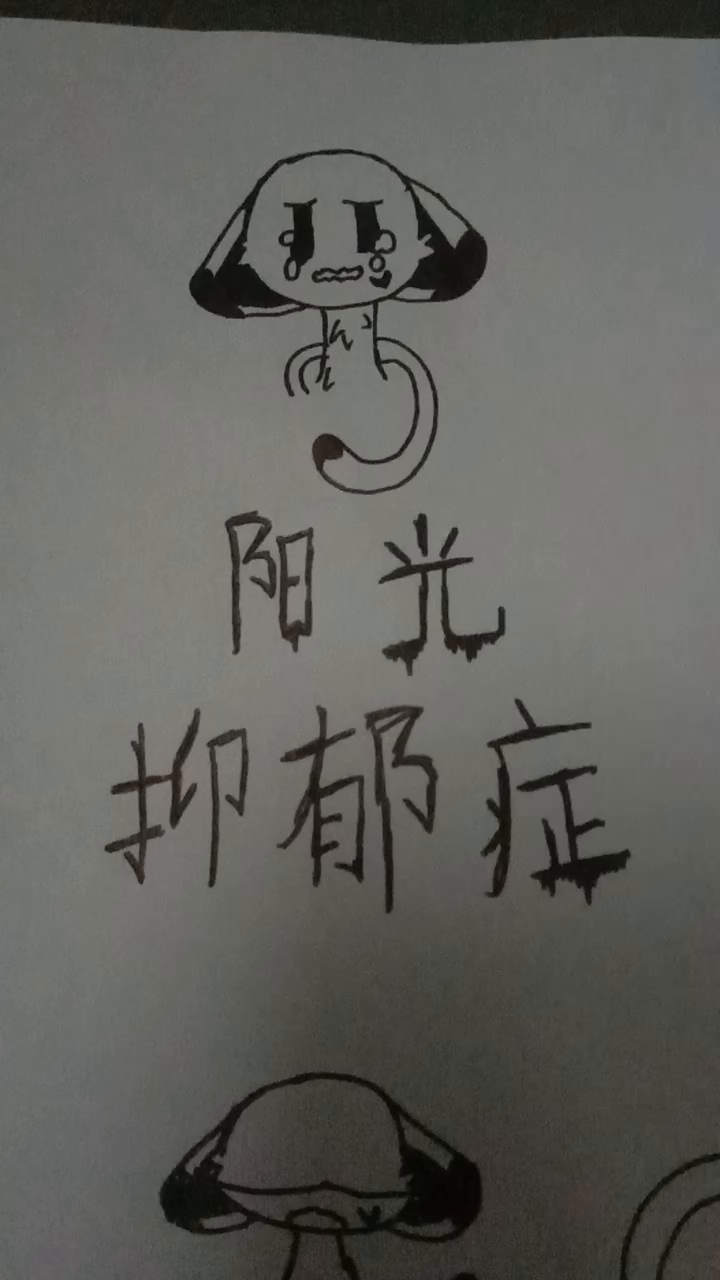 阳光
抑郁症